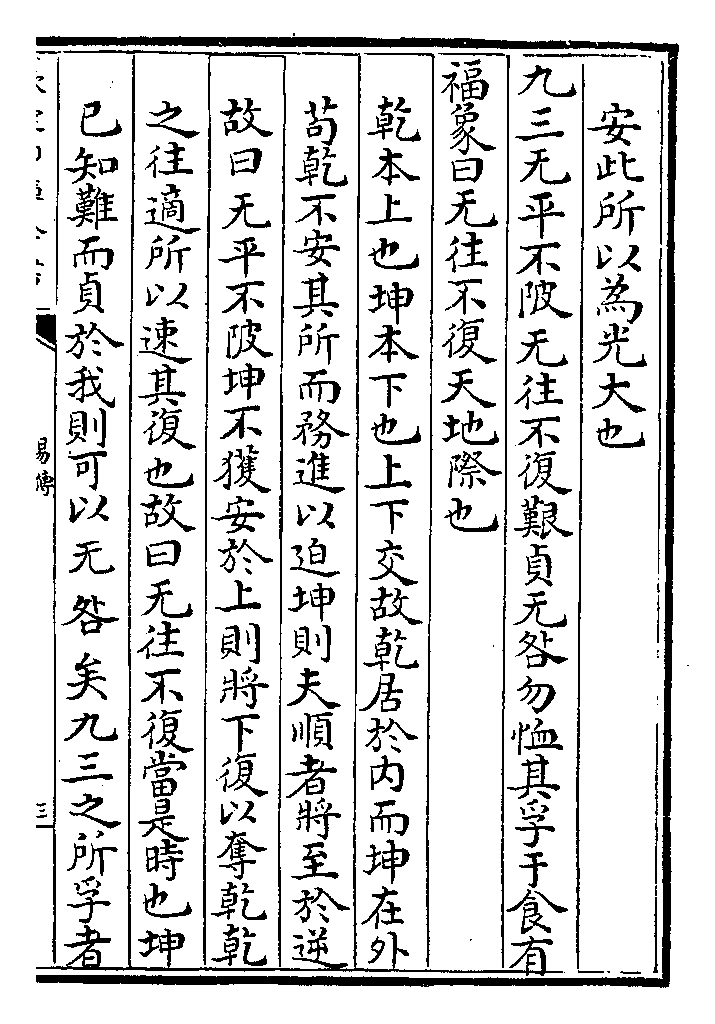 安此所以為光大也
九三无平不陂无往不復艱貞无咎勿恤其孚于食有
福象曰无往不復天地際也
乾本上也坤本下也上下交故乾居於内而坤在外
苟乾不安其所而務進以迫坤則夫順者將至於逆
故曰无平不陂坤不獲安於上則將下復以奪乾乾
之往適所以速其復也故曰无往不復當是時也坤
已知難而貞於我則可以无咎矣九三之所孚者
易傳
三